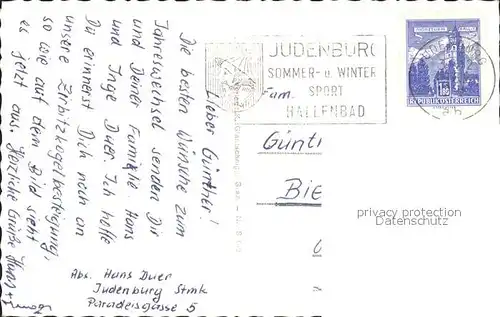 Lieber Günther!
Die besten Wünsche zum
Jahreswechsel senden Dir
und Deiner Familie. Hans
und Inge Duer. Ich hoffe
Du erinnerst Dich noch an
unsere Zirbitzkogelbesteigung,
so wie auf dem Bild sieht
es jetzt aus Herzliche Grüße Hans +
Abs. Hans Duer
Judenburg Stmk
Paradeisgasse 5
JUDENBURG
SOMMER- u. WINTER
SPORT
HALLENBAD
REPUBLIK ÖSTERREICH
Fam.
Günt
Bie
privacy protection
watermark